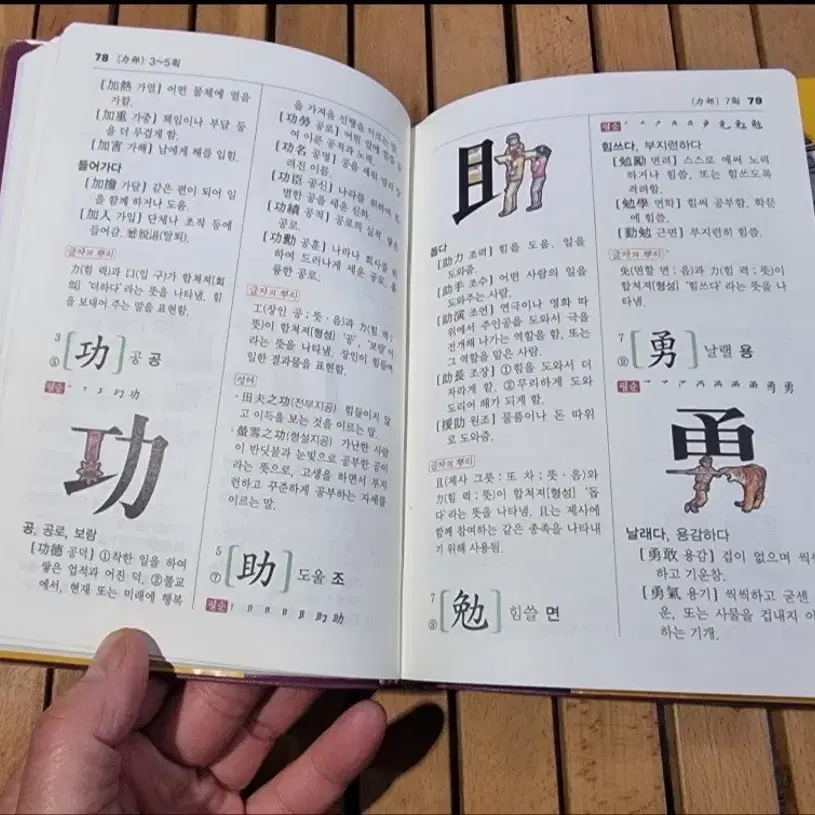 78 (力部) 3~5획
[加熱 가열] 어떤 물체에 열을
가함.
[加重 가중] 책임이나 부담 등
을 더 무겁게 함.
[加害 가해] 남에게 해를 입힘.
들어가다
[加擔 가담] 같은 편이 되어 일
을 함께 하거나 도움.
[加入 가입] 단체나 조직 등에
들어감. 脫退(탈퇴).
글자의 뿌리
力(힘 력)과 口(입 구)가 합쳐져[회
의] '더하다'라는 뜻을 나타냄. 힘
을 보태어 주는 말을 표현함.
3
⑤ [功] 공 공
필순
功
공, 공로, 보람
[功德 공덕] ①착한 일을 하여
쌓은 업적과 어진 덕. ②불교
에서, 현재 또는 미래에 행복
을 가져올 선행을 이르는 말.
[功勞 공로] 어떤 일에 힘을 들
여 이룬 공적과 노력.
[功名 공명] 공을 세워 널리 알
려진 이름.
[功臣 공신] 나라를 위하여 특
별한 공을 세운 신하.
[功績 공적] 공로의 실적. 쌓은
공로.
[功勳 공훈] 나라나 회사를 위
하여 드러나게 세운 공로. 훌
륭한 공로.
글자의 뿌리
工(장인 공 ; 뜻·음)과 力(힘 력 ;
뜻)이 합쳐져[형성] '공', '보람'이
라는 뜻을 나타냄. 장인이 힘들여
일한 결과물을 표현함.
성어
·田夫之功(전부지공) 힘들이지 않
고 이득을 보는 것을 이르는 말.
·螢雪之功(형설지공) 가난한 사람
이 반딧불과 눈빛으로 공부한 공이
라는 뜻으로, 고생을 하면서 부지
런하고 꾸준하게 공부하는 자세를
이르는 말.
5
⑦ [助] 도울 조
필순
(力部) 7획 79
助
돕다
[助力 조력] 힘을 도움. 일을
도와줌.
[助手 조수] 어떤 사람의 일을
도와주는 사람.
[助演 조연] 연극이나 영화 따
위에서 주인공을 도와서 극을
전개해 나가는 역할을 함. 또는
그 역할을 맡은 사람.
[助長 조장] ①힘을 도와서 더
자라게 함. ②무리하게 도와
도리어 해가 되게 함.
[援助 원조] 물품이나 돈 따위
로 도와줌.
글자의 뿌리
且(제사 그릇 : 또 차 ; 뜻·음)와
力(힘 력 ; 뜻)이 합쳐져[형성] '돕
다'라는 뜻을 나타냄. 且는 제사에
함께 참여하는 같은 종족을 나타내
기 위해 사용됨.
7
⑨ [勉] 힘쓸 면
필순
힘쓰다, 부지런하다
[勉勵 면려] 스스로 애써 노력
하거나 힘씀. 또는 힘쓰도록
격려함.
[勉學 면학] 힘써 공부함. 학문
에 힘씀.
[勤勉 근면] 부지런히 힘씀.
글자의 뿌리
免(면할 면 ; 음)과 力(힘 력 ; 뜻)이
합쳐져[형성] '힘쓰다'라는 뜻을 나
타냄.
7
⑨ [勇] 날랠 용
필순
勇
날래다, 용감하다
[勇敢 용감] 겁이 없으며 씩씩
하고 기운참.
[勇氣 용기] 씩씩하고 굳센
운, 또는 사물을 겁내지 아
하는 기개.